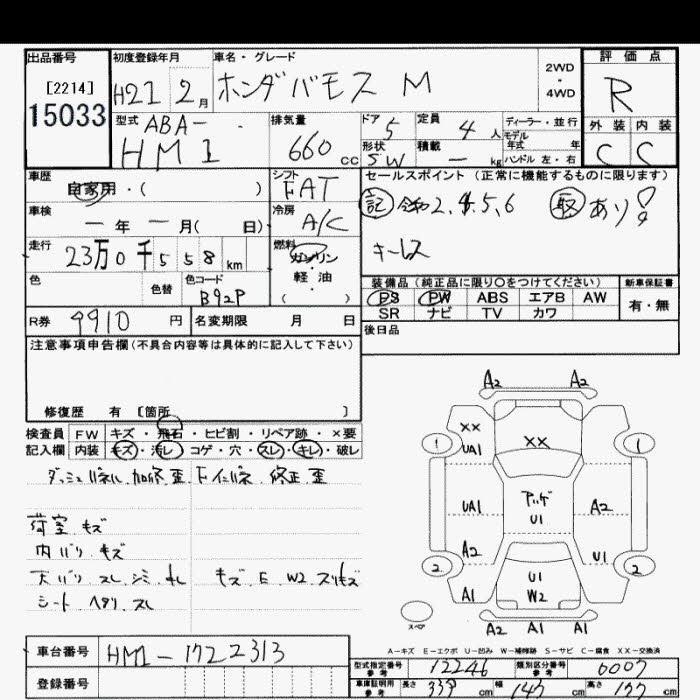 出品番号 初度登録年月 車名・グレード 評価点
[2214] H21 2月 ホンダバモス M 2WD・4WD R
15033 型式 ABA- 排気量 ドア 5 定員 4人 ディーラー・並行 外装 内装
HM1 660cc 形状 SW 積載 ー kg モデル年式 年 ハンドル 左・右 C C
車歴 自家用・( ) シフト FAT セールスポイント (正常に機能するものに限ります)
車検 ー年ー月( 日) 冷房 A/C 記 2.4.5.6 取あり
走行 23万0千558km 燃料 ガソリン・軽油( ) キーレス
色 色替 色コード B92P 装備品(純正品に限り○をつけてください) 新車保証書
PS PW ABS エアB AW 有・無
R券 9910円 名変期限 月 日 SR ナビ TV カワ
注意事項申告欄(不具合内容等は具体的に記入して下さい) 後日品
修復歴 有 [箇所 ]
検査員 FW キズ・飛石・ヒビ割・リペア跡・×要
記入欄 内装 キズ・汚レ コゲ・穴・スレ・キレ・破レ
ダッシュパネル 加修 歪 Fインパネ 修正 歪
荷室 キズ
内バリ キズ
天バリ スレ シミ キズ E W2
シート ヘタリ スレ
A2 A2
1 XX UA1 XX 1
UA1 U1 A2
A2 U1
2 A1 U1 W2 A1 2
スペア A2 A1 A1
A-キズ E-エクボ U-凹み W-補修跡 S-サビ C-腐食 XX-交換済
車台番号 HM1-1722313
登録番号
型式指定番号 参考 12246 類別区分番号 参考 0007
車庫証明用 参考 長さ 339cm 幅 147cm 高さ 177cm